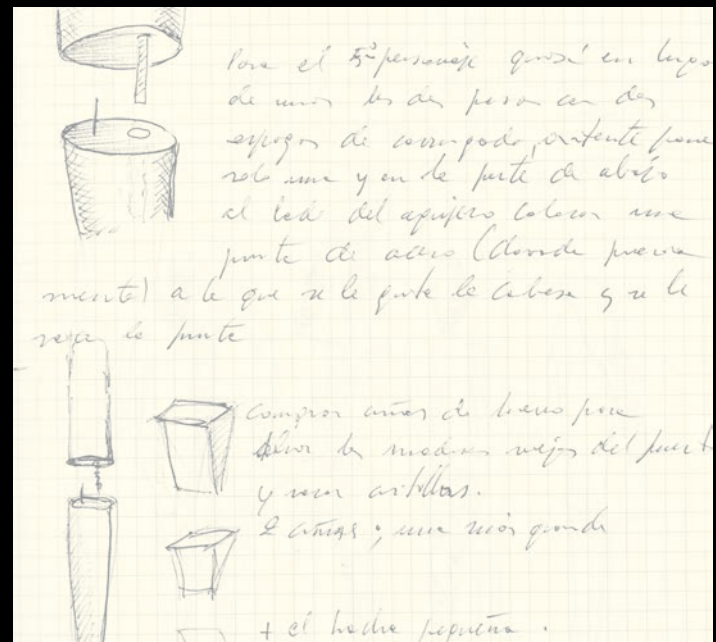 Para el 5º personaje quizá en lugar
de unir las dos piezas con dos
espigas de corrugado, intente poner
solo una y en la parte de abajo
al lado del agujero colocar una
punta de acero (clavada previa
mente) a la que se le quite la cabeza y se le
saca la punta
Comprar cuñas de hierro para
las maderas viejas del puerto
y sacar astillas.
2 cuñas, una más grande
+ el hacha pequeña.